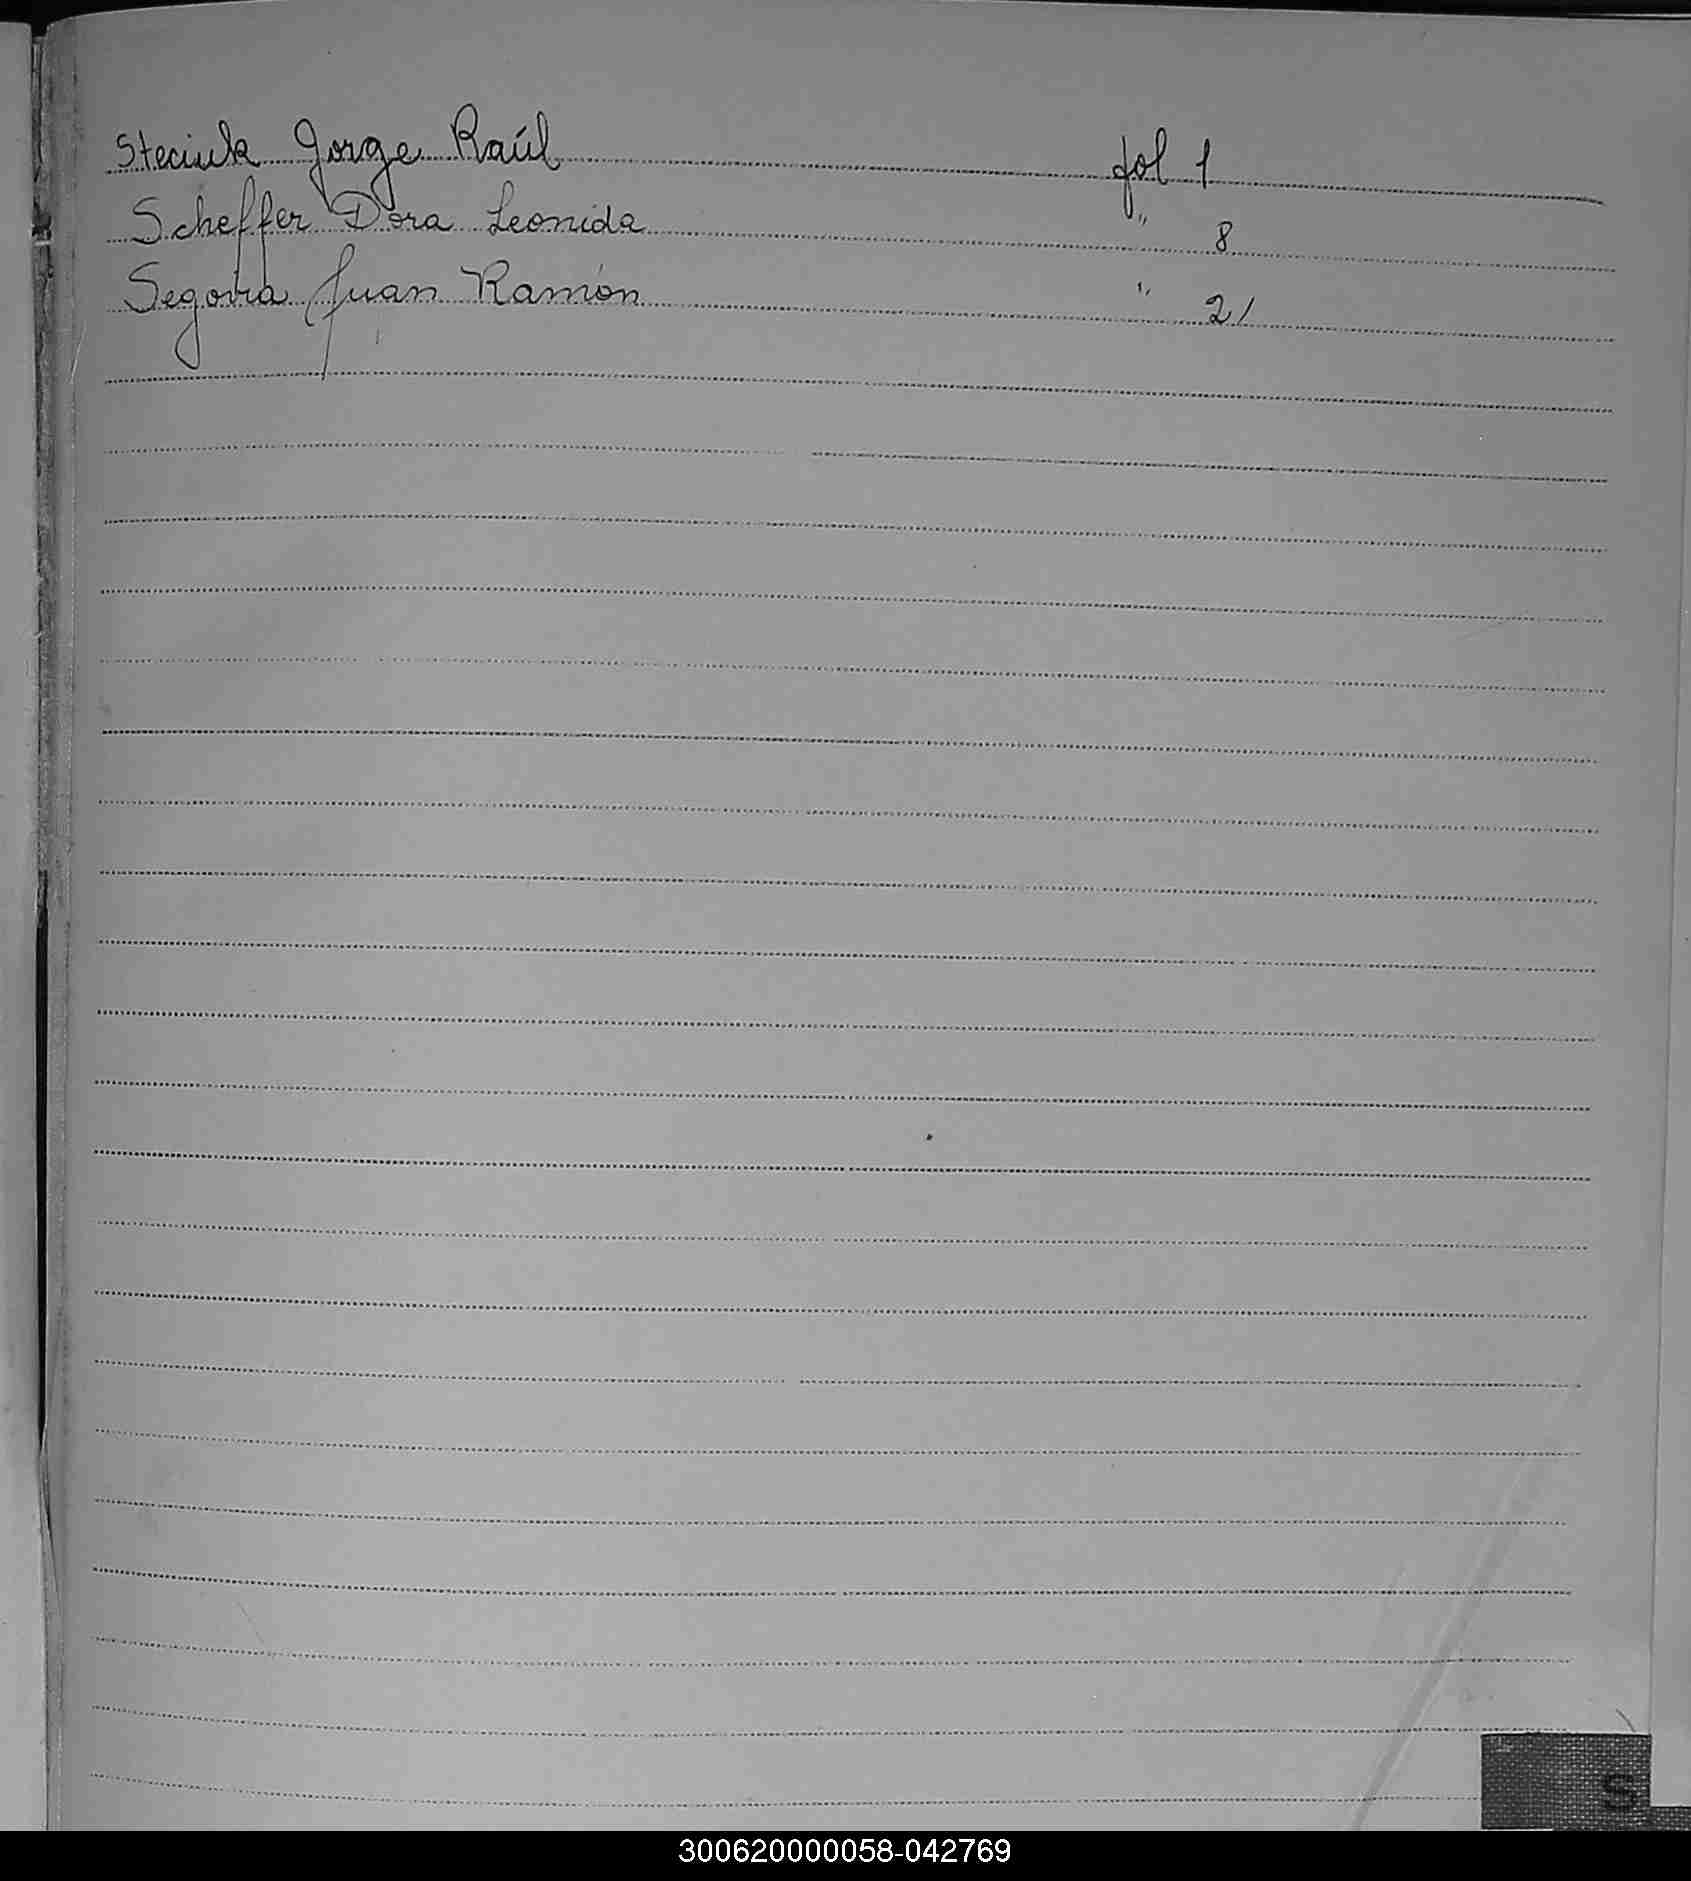 Steciuk Jorge Raúl fol 1
Scheffer Dora Leonida " 8
Segovia Juan Ramón " 21
S
300620000058-042769